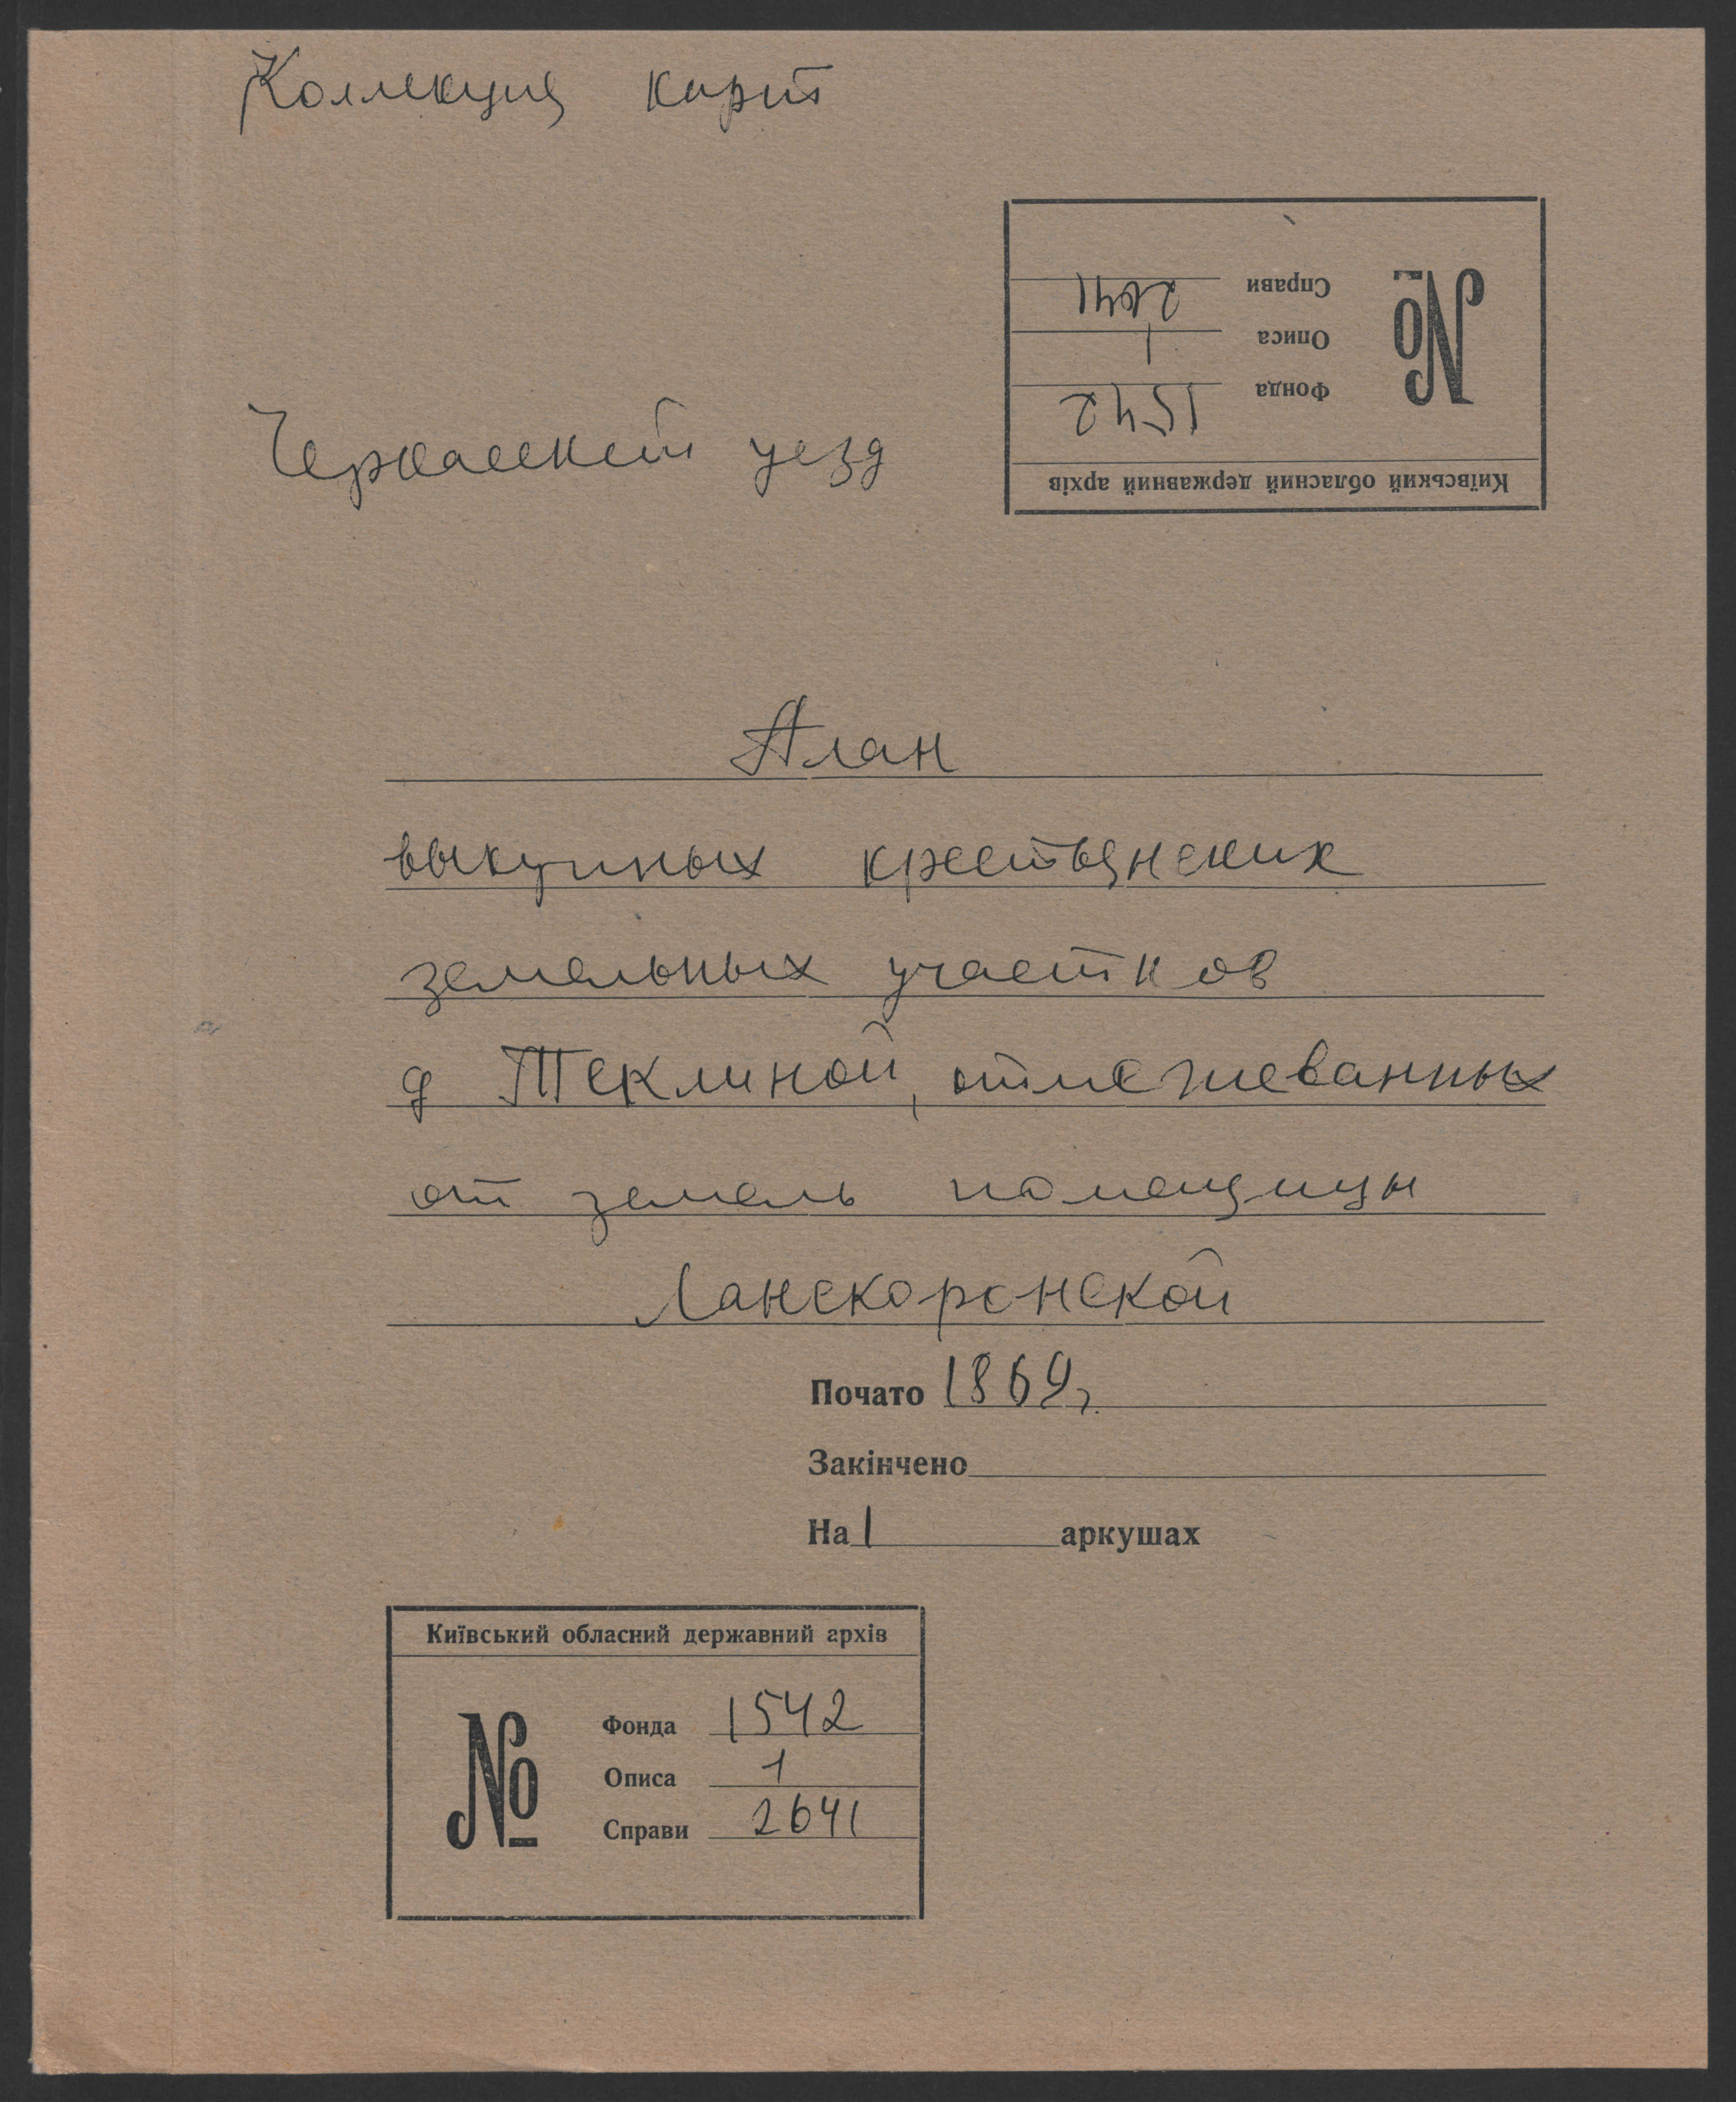 Коллекция карт
Київський обласний державний архів
№
Фонда 1542
Описа 1
Справи 2641
Черкасский уезд
План
выкупных крестьянских
земельных участков
д Теклиной, отмежеванных
от земель помещицы
Ланскоронской
Почато 1869г.
Закінчено
На 1 аркушах
Київський обласний державний архів
№
Фонда 1542
Описа 1
Справи 2641